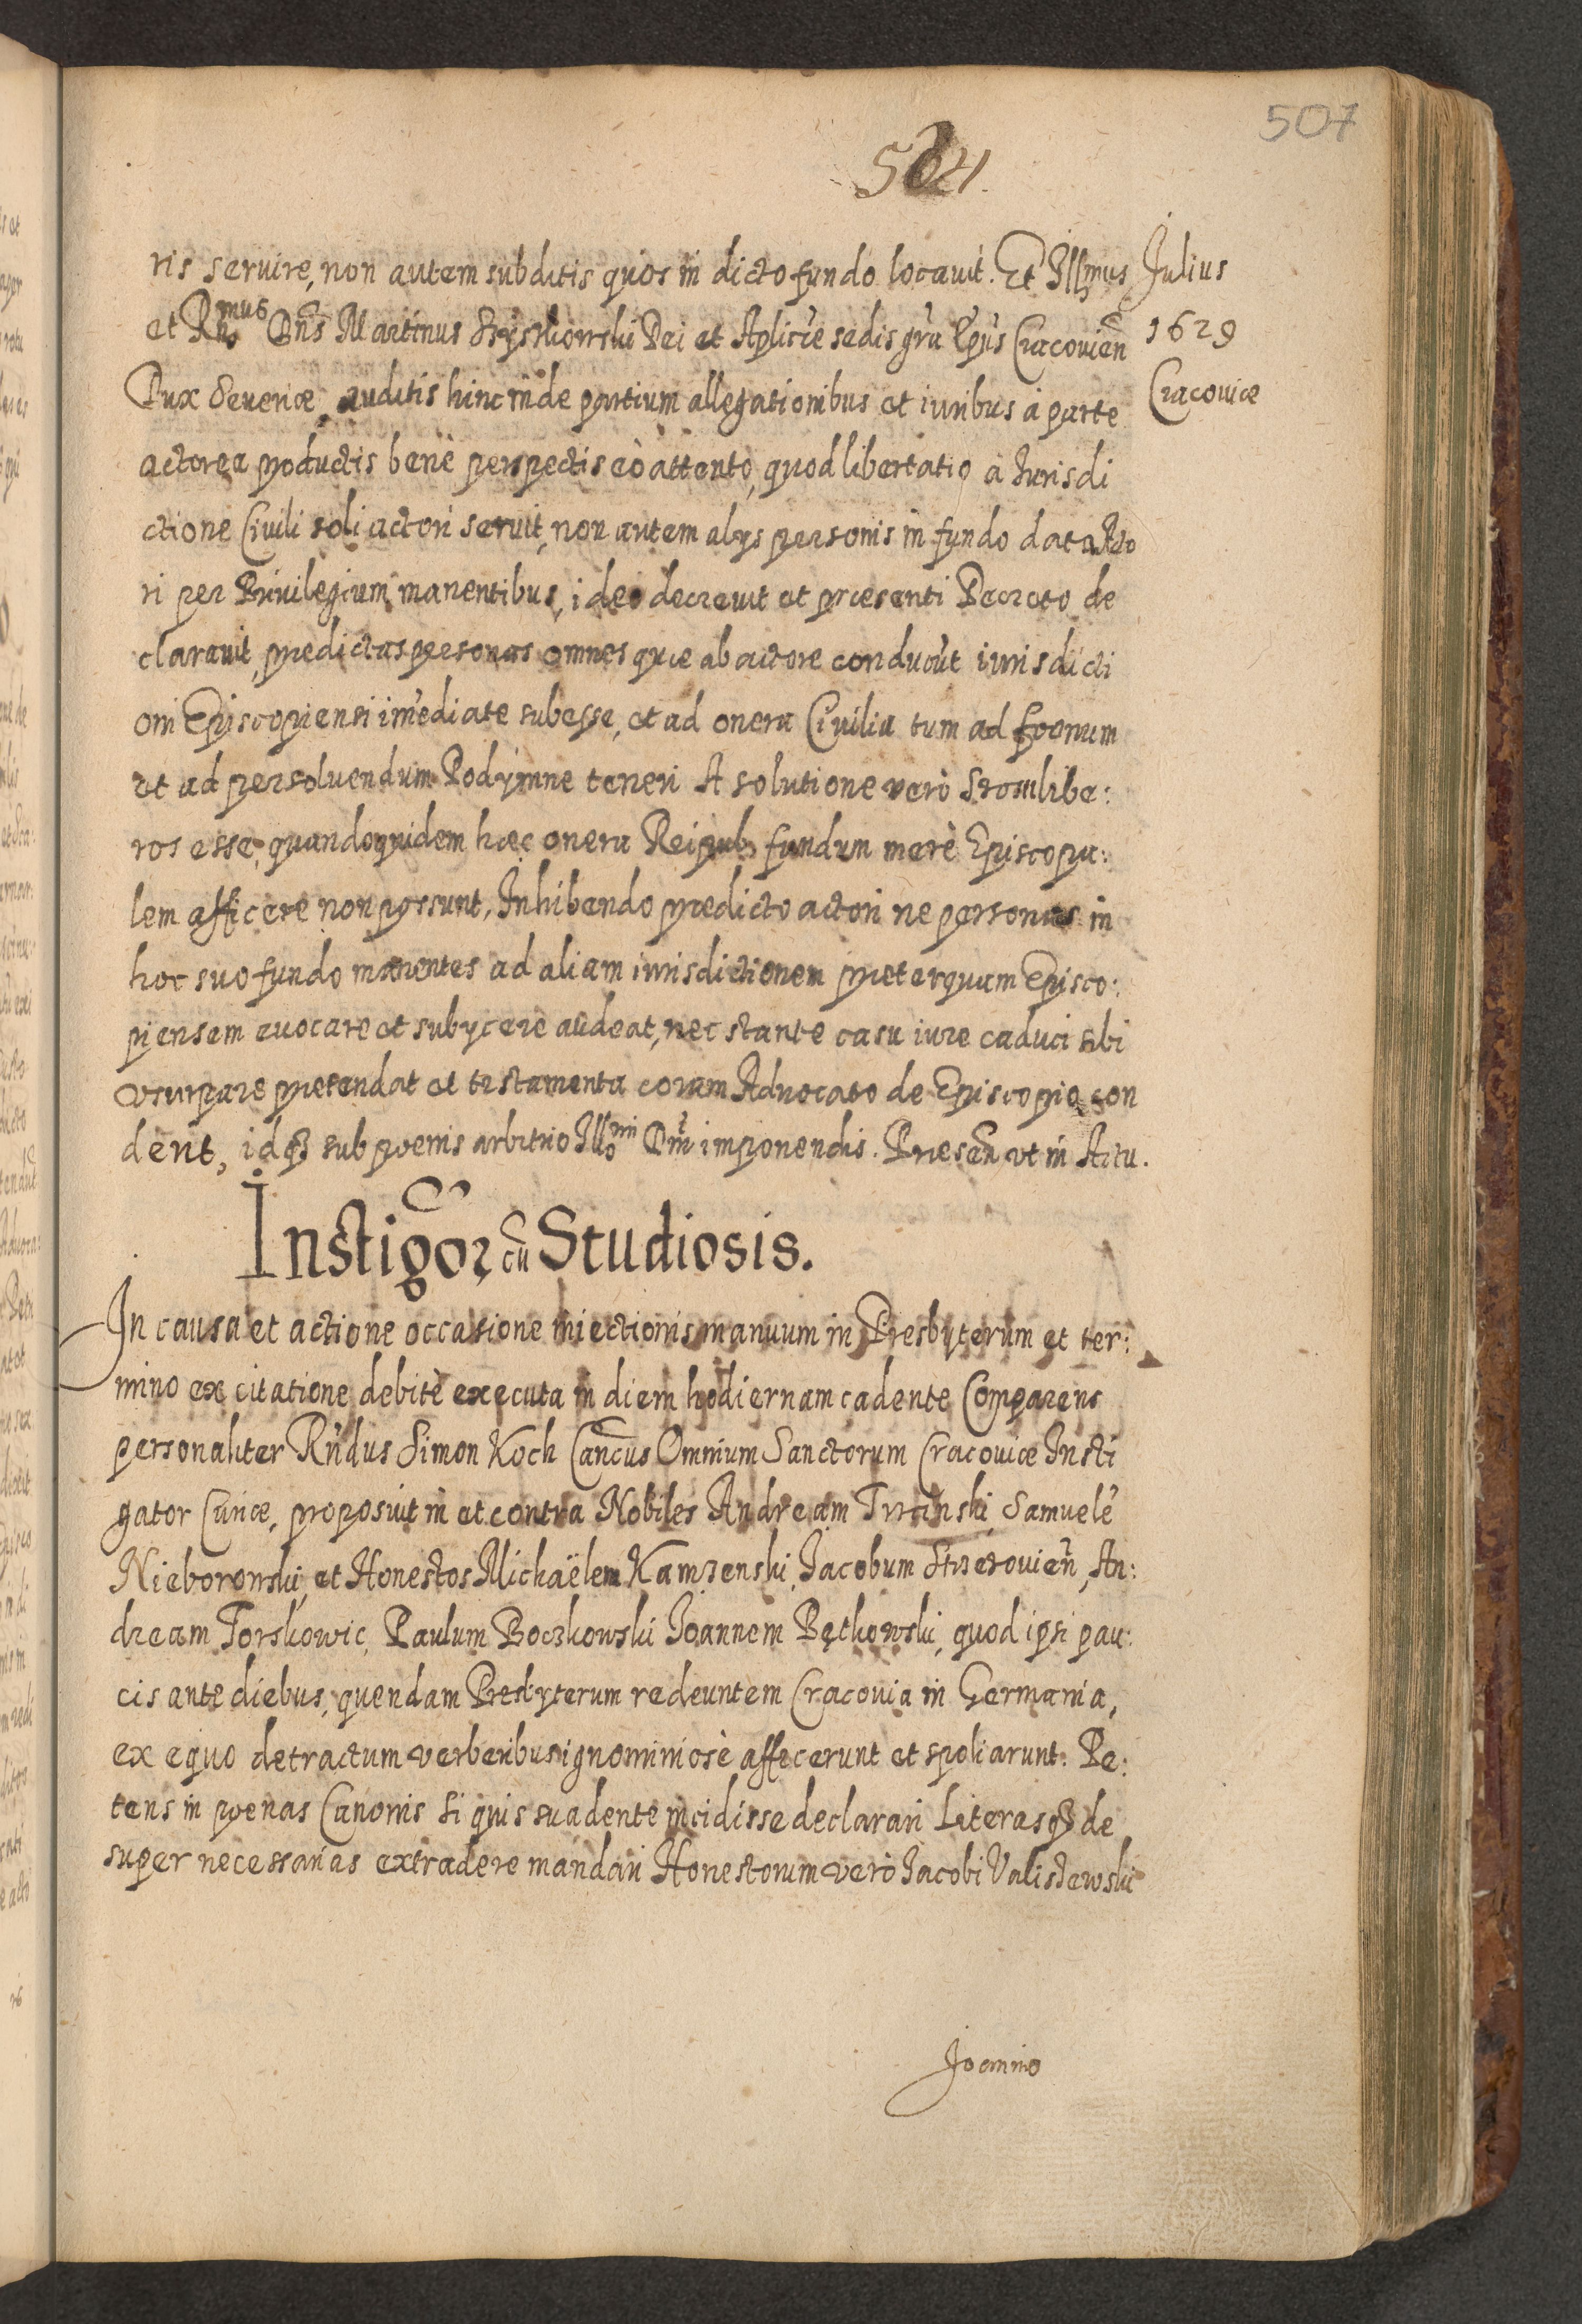 507
504.
ris seruire, non autem subditis quos in dicto fundo locauit. Et Illmus
Julius
et Rmus Dns Martinus Szyszkowski Dei et Aplicae sedis gra Epus Cracouien
1629
Dux Seueriae, auditis hinc inde partium allegationibus et iuribus à parte
Cracouiae
actorea productis benè perspectis eò attento, quod libertatio à Jurisdi
ctione Ciuili soli actori seruit, non autem alijs personis in fundo dato Acto
ri per Priuilegium manentibus, ideo decreuit et praesenti Decreto de
clarauit, praedictas personas omnes quae ab actore conducut iurisdicti
oni Episcopiensi imediate subesse, et ad onera Ciuilia tum ad
et ad persoluendum Podymne teneri A solutione verò Szosu libe:
ros esse, quandoquidem haec onera Reipub. fundum merè Episcopa:
lem afficere non possunt, Inhibendo praedicto actori ne personas in
hoc suo fundo manentes ad aliam iurisdictionem praeterquam Episco:
piensem euocare et subijcere audeat, nec stante casu iure caduci sibi
vsurpare praetendat et testamenta coram Aduocato de Episcopio con
dent, idq3 sub poenis arbitrio Illmi Dni imponendis. Praesen vt in Actu.
Instigor cu Studiosis.
In causa et actione occasione iniectionis manuum in Presbyterum et ter:
mino ex citatione debitè executa in diem hodiernam cadente Comparens
personaliter Rndus Simon Koch Cancus Omnium Sanctorum Cracouiae Insti
gator Curiae, proposuit in et contra Nobiles Andream Samuele
Nieborowski, et Honestos Michaëlem Kamzenski, Jacobum An:
dream Torskowic, Paulum Boczkowski Joannem Bętkowski, quod ipsi pau:
cis ante diebus, quendam Presbyterum redeuntem Cracouia in Germania,
ex equo detractum verberibus ignominiosè affecerunt et spoliarunt. Pe:
tens in poenas Canonis Si quis suadente incidisse declarari Literasq3 de
super necessarias extradere mandari Honestorum verò Jacobi